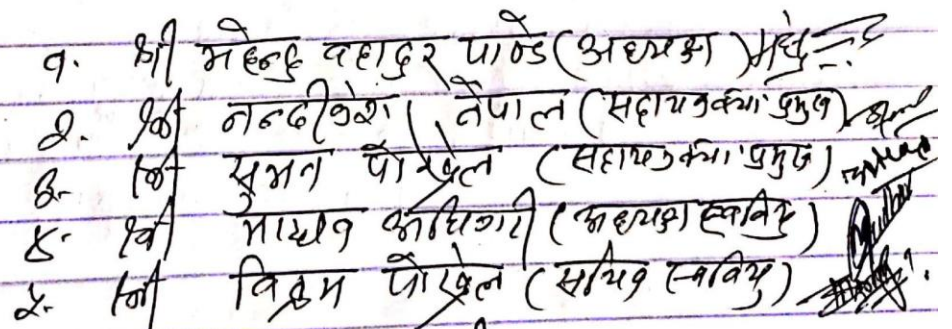 १. श्री महेन्द्र बहादुर पाण्डे (अध्यक्ष)
२. श्री नन्दीकेश नेपाल (सहायक क्या. प्रमुख)
३. श्री सुमन पोखेल (सहायक क्या. प्रमुख)
४. श्री माधव अधिकारी (अध्यक्ष स्ववियु)
५. श्री विक्रम पोखेल (सचिव स्ववियु)